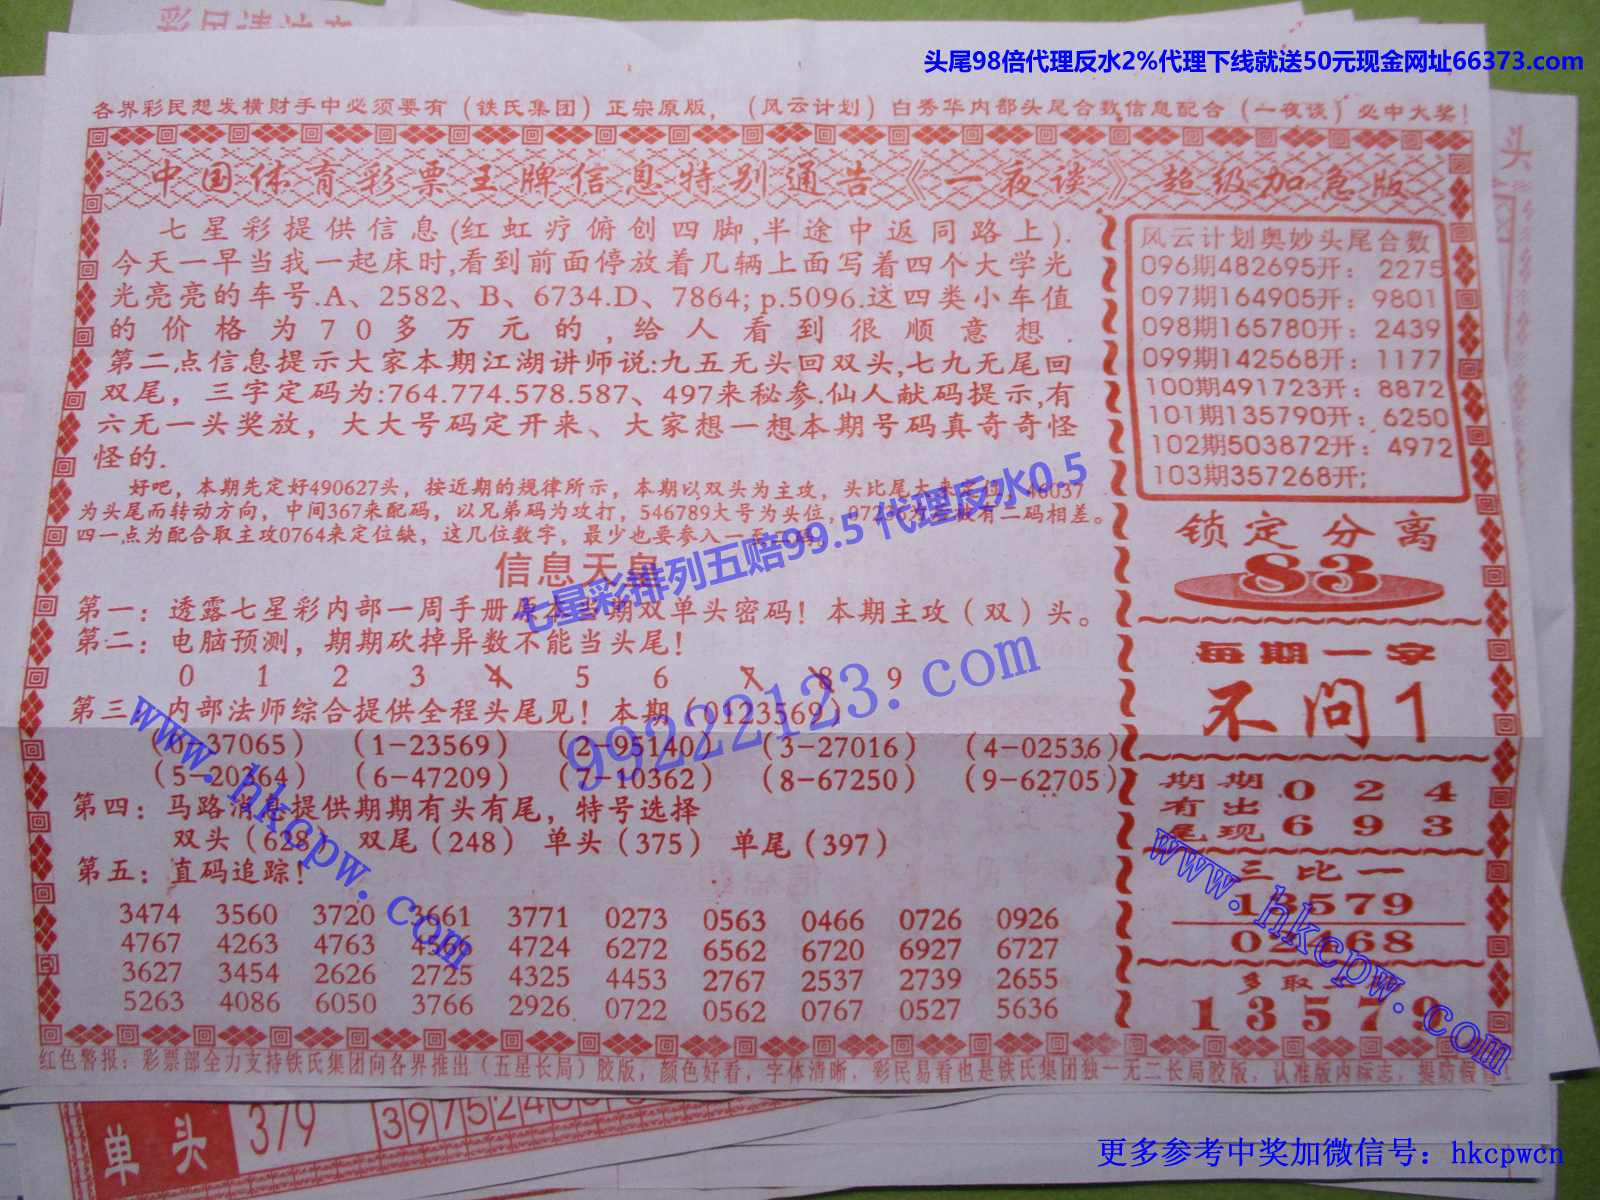 头尾98倍代理反水2%代理下线就送50元现金网址66373.com
各界彩民想发横财手中必须要有（铁氏集团）正宗原版，（风云计划）白秀华内部头尾合数信息配合（一夜谈）必中大奖！
中国体育彩票王牌信息特别通告《一夜谈》超级加急版
七星彩提供信息(红虹疗俯创四脚,半途中返同路上).
今天一早当我一起床时,看到前面停放着几辆上面写着四个大学光
光亮亮的车号.A、2582、B、6734.D、7864; p.5096.这四类小车值
的价格为70多万元的,给人看到很顺意想.
第二点信息提示大家本期江湖讲师说:九五无头回双头,七九无尾回
双尾，三字定码为:764.774.578.587、497来秘参.仙人献码提示,有
六无一头奖放，大大号码定开来、大家想一想本期号码真奇奇怪
怪的.
好吧，本期先定好490627头，按近期的规律所示，本期以双头为主攻，头比尾大来
为头尾而转动方向，中间367来配码，以兄弟码为攻打，546789大号为头位，
有二码相差。
四一点为配合取主攻0764来定位缺，这几位数字，最少也要参入一至二码。
信息天皇
第一：透露七星彩内部一周手册原本当期双单头密码！本期主攻（双）头。
第二：电脑预测，期期砍掉异数不能当头尾！
0 1 2 3 4 5 6 7 8 9
第三：内部法师综合提供全程头尾见！本期（0123569）
（0-37065）（1-23569）（2-95140）（3-27016）（4-02536）
（5-20364）（6-47209）（7-10362）（8-67250）（9-62705）
第四：马路消息提供期期有头有尾，特号选择
双头（628）双尾（248）单头（375）单尾（397）
第五：直码追踪！
3474 3560 3720 3661 3771 0273 0563 0466 0726 0926
4767 4263 4763 4566 4724 6272 6562 6720 6927 6727
3627 3454 2626 2725 4325 4453 2767 2537 2739 2655
5263 4086 6050 3766 2926 0722 0562 0767 0527 5636
风云计划奥妙头尾合数
096期482695开：2275
097期164905开：9801
098期165780开：2439
099期142568开：1177
100期491723开：8872
101期135790开：6250
102期503872开：4972
103期357268开;
锁定分离
83
每期一字
不问1
期期 0 2 4
有出
尾现 6 9 3
三比一
13579
02468
多取
13579
红色警报：彩票部全力支持铁氏集团向各界推出（五星长局）胶版，颜色好看，字体清晰，彩民易看也是铁氏集团独一无二长局胶版，认准版内标志，提防假冒！
七星彩排列五赔99.5 代理反水0.5
99222123.com
www.hkcpw.com
www.hkcpw.com
单头 379
头
更多参考中奖加微信号：hkcpwcn